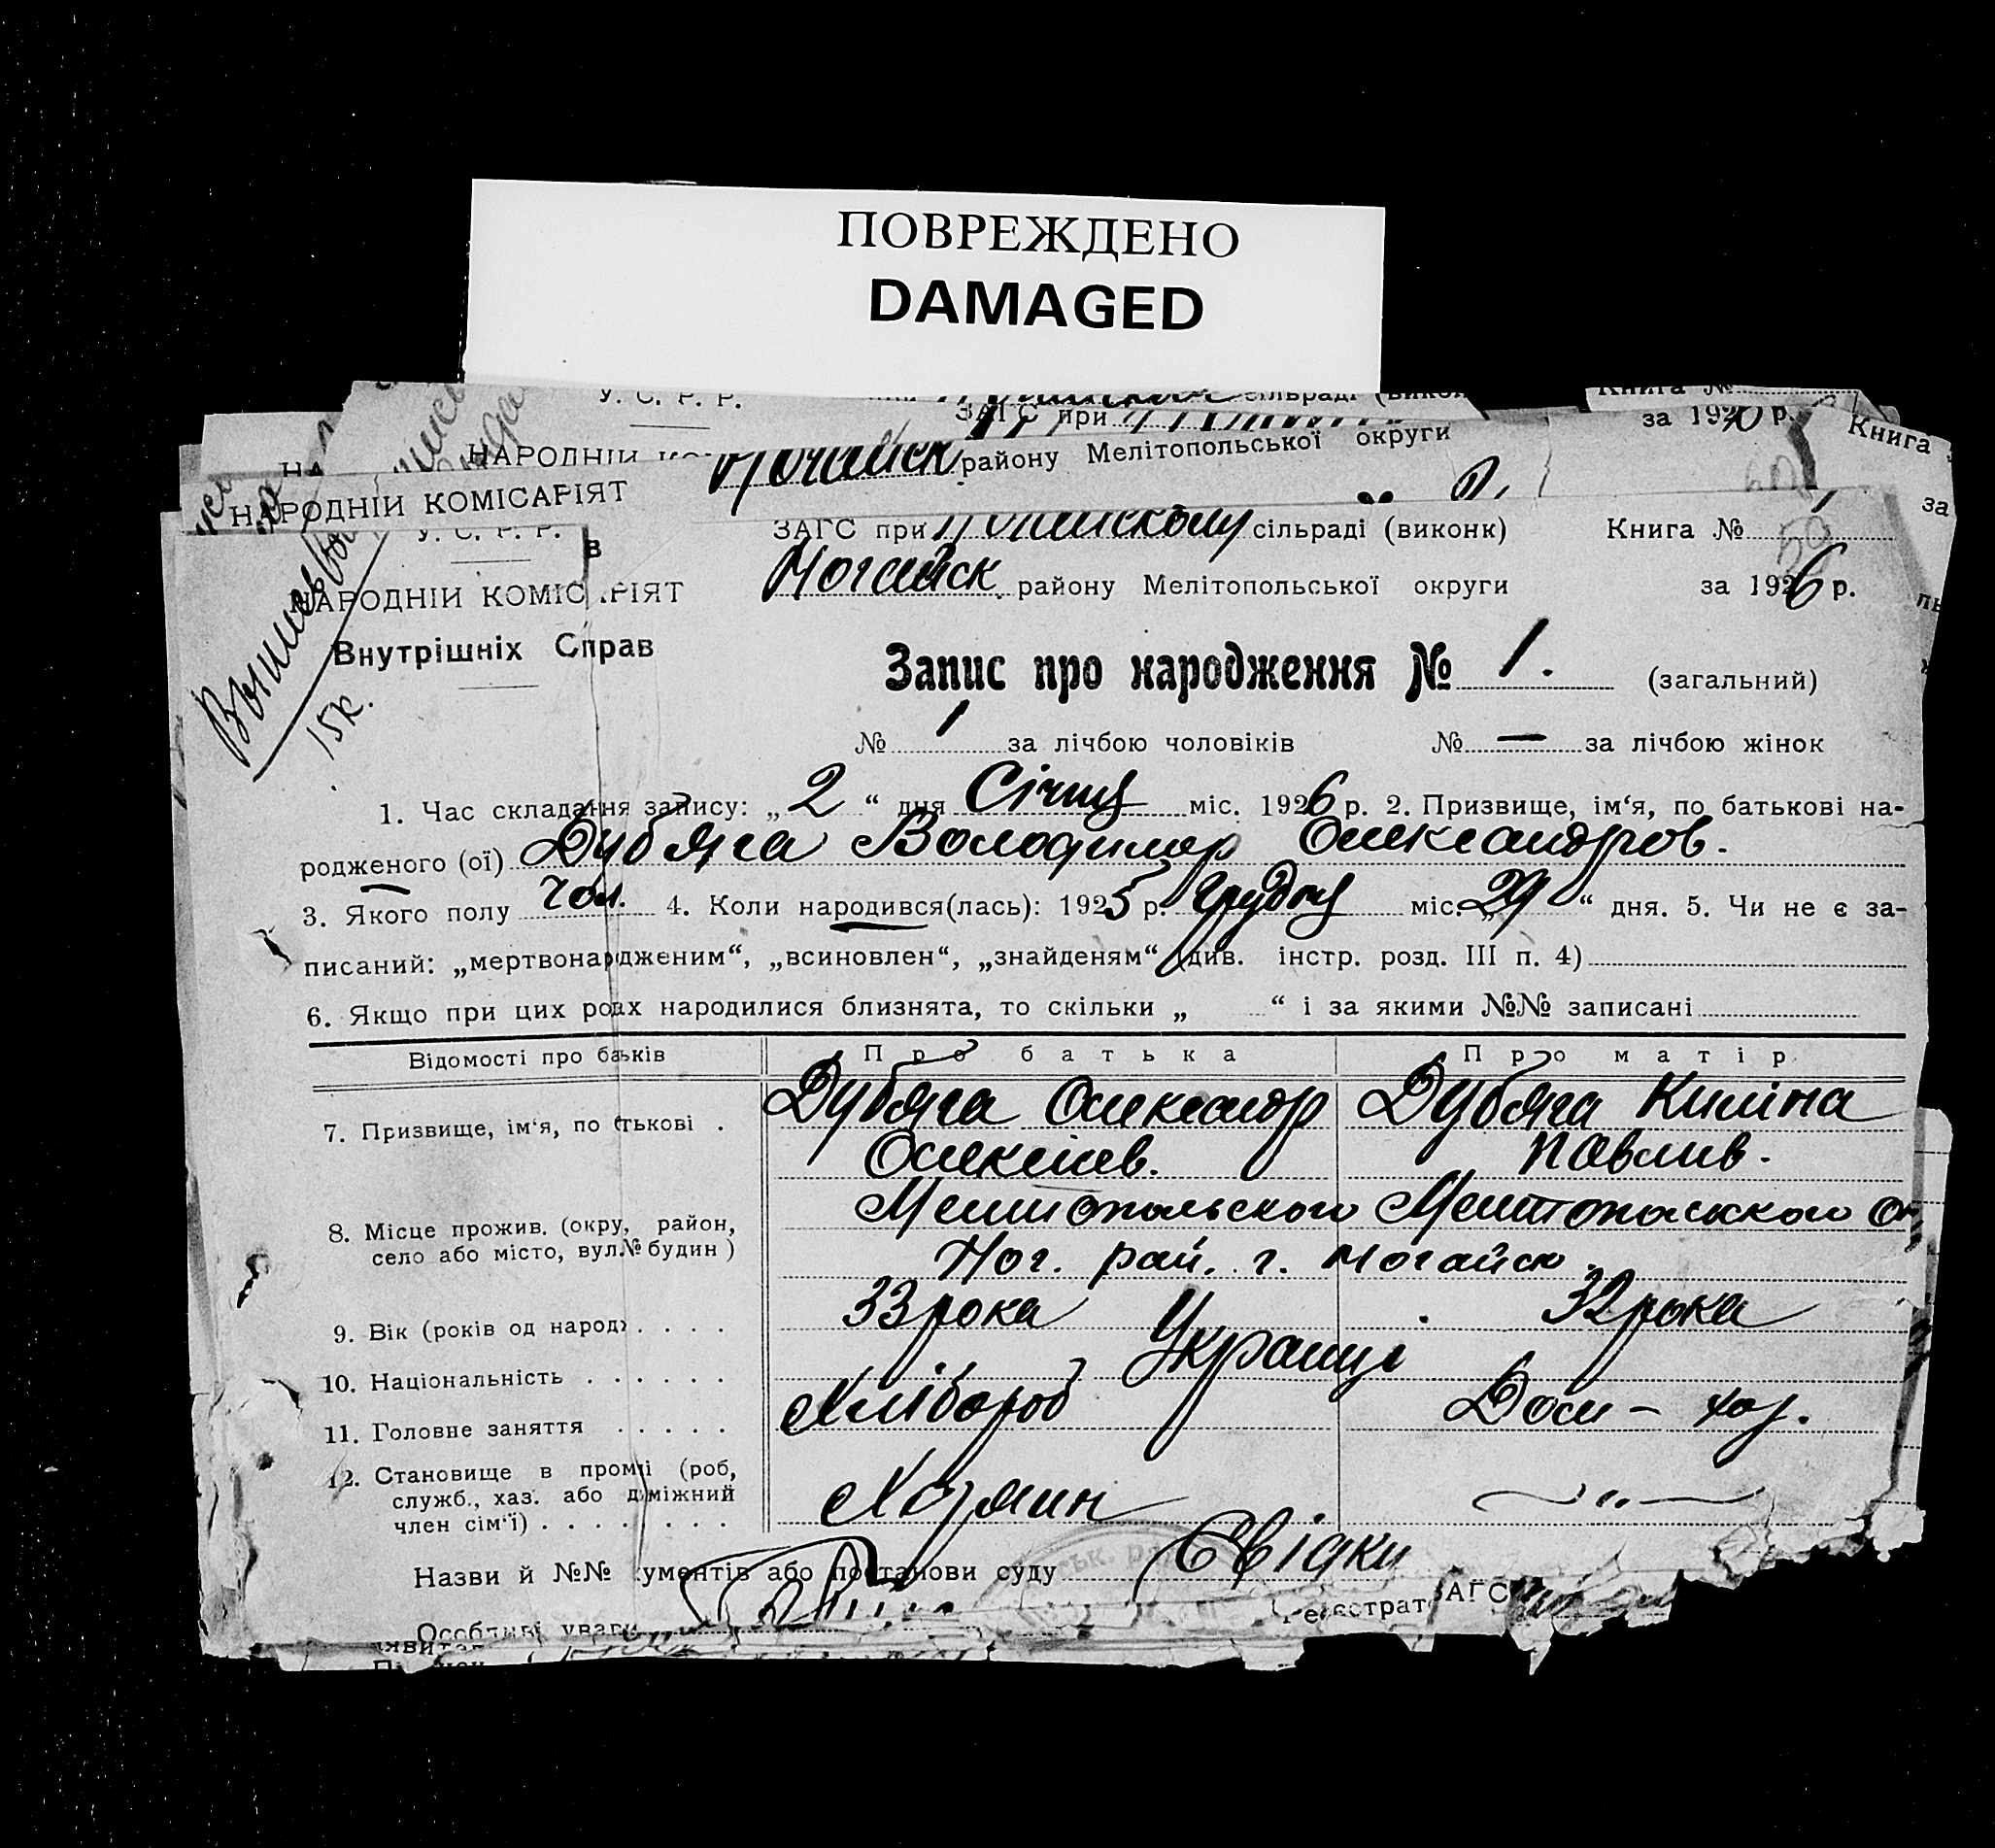 ПОВРЕЖДЕНО
DAMAGED
У. С. Р. Р.
сільраді
Книга №
ЗАГС при
за 1920 р.
Книга
НА
НАРОДНІЙ
Ногайск району Мелітопольської округи
за
НАРОДНІЙ КОМІСАРІЯТ
У. С. Р. Р.
ЗАГС при сільраді (виконк)
Книга № 1
50
в
НАРОДНІЙ КОМІС РІЯТ
Ногайск району Мелітопольської округи
за 1926 р.
Внутрішніх Справ
15к.
Запис про народження № 1. (загальний)
№ 1 за лічбою чоловіків № — за лічбою жінок
1. Час складання запису: „ 2 “ дня Січня міс. 1926 р. 2. Призвище, ім‘я, по батькові на-
родженого (ої) Дубяга Володимир Олександров.
3. Якого полу чол. 4. Коли народився(лась): 1925 р. Грудня міс. „ 29 “ дня. 5. Чи не є за-
писаний: „мертвонародженим“, „всиновлен“, „знайденям“ (див. інстр. розд. III п. 4)
6. Якщо при цих родах народилися близнята, то скільки „ “ і за якими №№ записані
Відомості про батьків Про батька Про матір
7. Призвище, ім‘я, по батькові . Дубяга Олександр Дубяга Килина
Олексіїв. Павлив.
8. Місце прожив. (окру, район, Мелитопольского Мелитопольского Ок
село або місто, вул.№ будин ) Ног. рай. г. Ногайск.
9. Вік (років од народ) . . . . 33 рока 32 рока
10. Національність . . . . . . Українці
11. Головне заняття . . . . . Хлібороб Дом - хоз.
12. Становище в промі (роб, служб., хаз. або домі́жний член сім‘ї) . . . . . . . Хозяин — " —
Назви й №№ ументів або постанови суду Свідки
Особливі уваги
ЗАГС